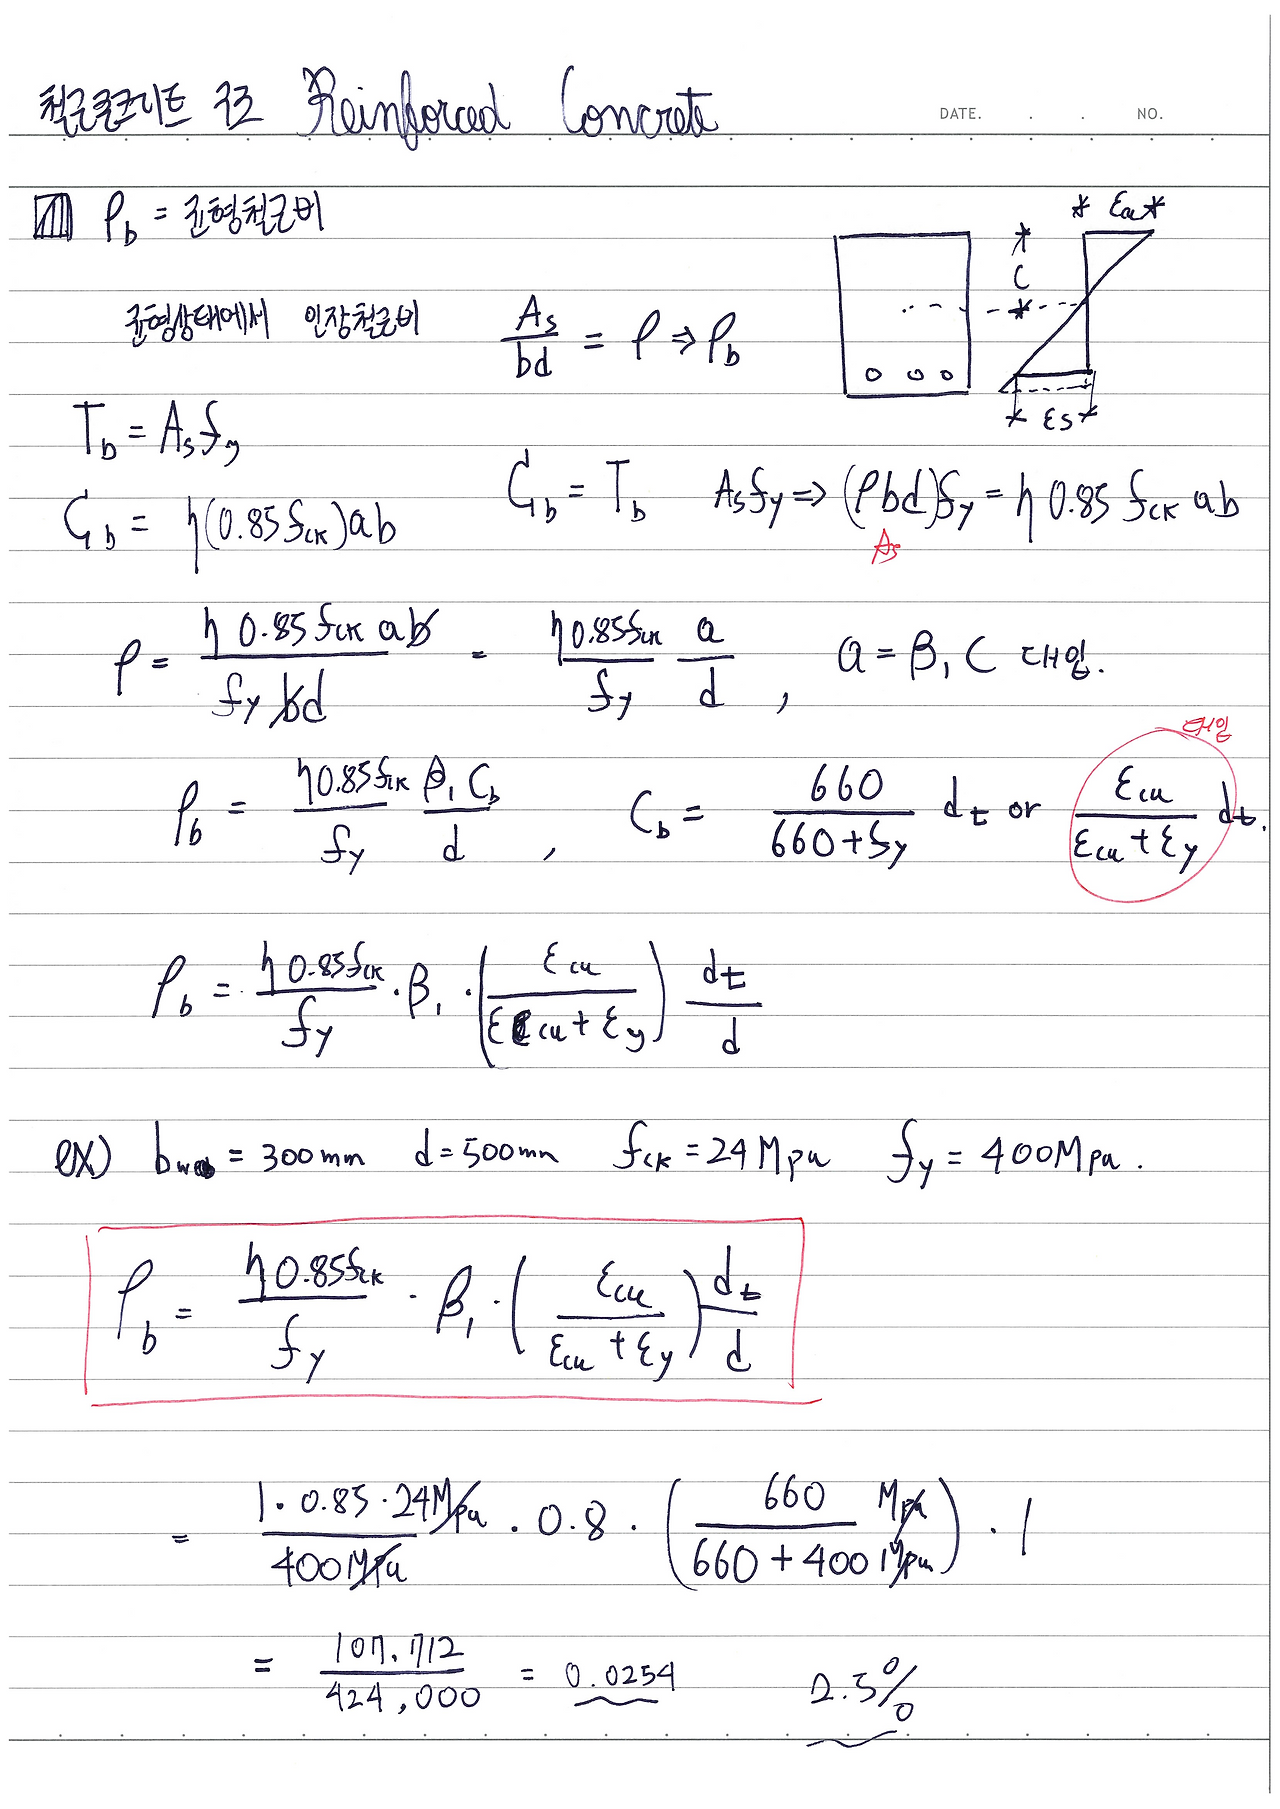 철근콘크리트 구조 Reinforced Concrete
DATE. . . NO.
ρb = 균형철근비
εcu
C
εs
균형상태에서 인장철근비 As/bd = ρ ⇒ ρb
Tb = As fy
Cb = η(0.85 fck) a b
Cb = Tb As fy ⇒ (ρbd)fy = η 0.85 fck a b
As
ρ = η 0.85 fck a b / fy b d = η 0.85 fck / fy a/d , a = β1 C 대입.
대입
ρb = η 0.85 fck / fy β1 Cb / d , Cb = 660 / 660+fy dt or εcu / εcu + εy dt.
ρb = η 0.85 fck / fy · β1 · (εcu / εcu + εy) dt/d
ex) bweb = 300mm d = 500mm fck = 24Mpa fy = 400Mpa.
ρb = η 0.85 fck / fy · β1 · (εcu / εcu + εy) dt/d
= 1 · 0.85 · 24Mpa / 400Mpa · 0.8 · (660 Mpa / 660 + 400 Mpa) · 1
= 107.712 / 424,000 = 0.0254 2.5%